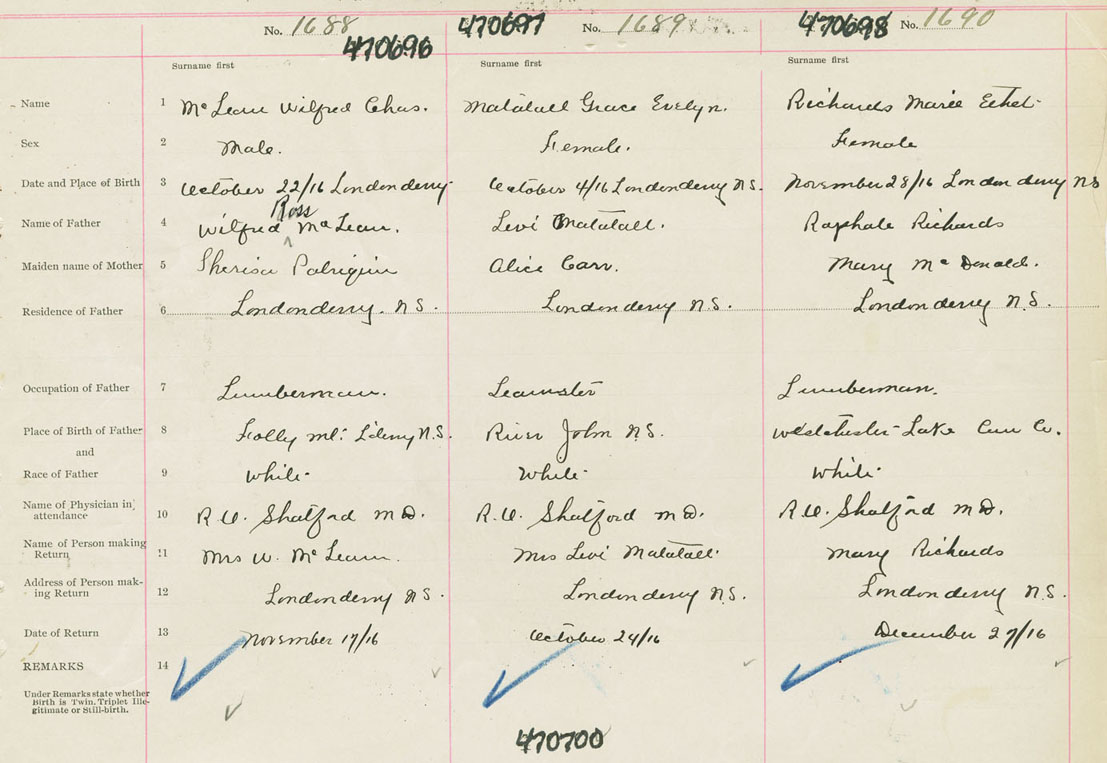 No. 1688 470696 470697 No. 1689 470698 No. 1690
Surname first Surname first Surname first
Name 1 McLean Wilfred Chas. Matatall Grace Evelyn. Richards Marie Ethel
Sex 2 Male. Female. Female
Date and Place of Birth 3 October 22/16 Londonderry October 4/16 Londonderry N.S. November 28/16 Londonderry N.S
Ross
Name of Father 4 Wilfred ^ McLean. Levi Matatall. Raphale Richards
Maiden name of Mother 5 Patriquin Alice Carr. Mary McDonald.
Residence of Father 6 Londonderry. N S. Londonderry N.S. Londonderry N.S.
Occupation of Father 7 Lumberman. Teamster Lumberman.
Place of Birth of Father 8 Folly Mt. L'derry N.S. River John N.S. Westchester Lake Cum Co.
and
Race of Father 9 White White White
Name of Physician in attendance 10 Shatford M.D. Shatford M.D. Shatford M.D.
Name of Person making Return 11 Mrs W. McLean. Mrs Levi Matatall Mary Richards
Address of Person mak-
ing Return 12 Londonderry N S. Londonderry N.S. Londonderry N.S.
Date of Return 13 November 17/16 October 24/16 December 27/16
REMARKS 14
Under Remarks state whether
Birth is Twin, Triplet Ille-
gitimate or Still-birth.
470700